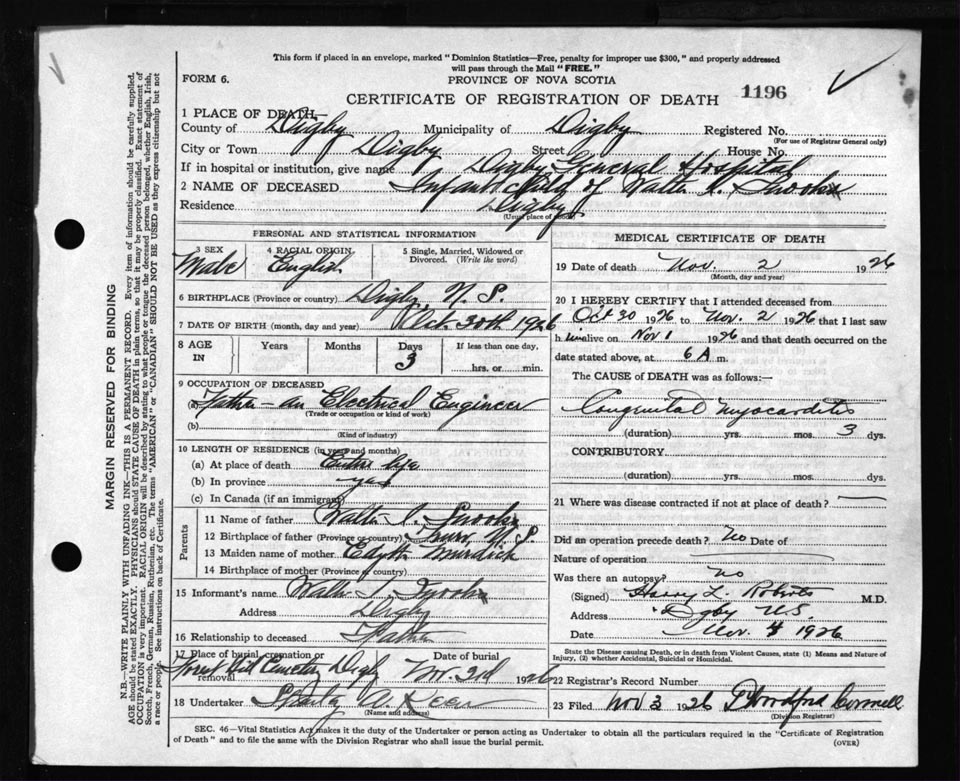 This form if placed in an envelope, marked "Dominion Statistics—Free, penalty for improper use $300," and properly addressed
will pass through the Mail "FREE."
FORM 6.
PROVINCE OF NOVA SCOTIA
CERTIFICATE OF REGISTRATION OF DEATH 1196
1 PLACE OF DEATH,—
County of Digby Municipality of Digby Registered No.
(For use of Registrar General only)
City or Town Digby Street House No.
If in hospital or institution, give name Digby General Hospital
2 NAME OF DECEASED Infant of Walter
Residence Digby
(Usual place of abode)
PERSONAL AND STATISTICAL INFORMATION
3 SEX 4 RACIAL ORIGIN 5 Single, Married, Widowed or
Divorced. (Write the word)
Male English
6 BIRTHPLACE (Province or country) Digby, N. S.
7 DATE OF BIRTH (month, day and year) Oct. 30th 1926
8 AGE IN Years Months Days If less than one day,
3 hrs. or min.
9 OCCUPATION OF DECEASED
(a) Father - an Electrical Engineer
(Trade or occupation or kind of work)
(b)
(Kind of industry)
10 LENGTH OF RESIDENCE (in years and months)
(a) At place of death Entire life
(b) In province yes
(c) In Canada (if an immigrant)
Parents
11 Name of father Walter
12 Birthplace of father (Province or country) N. S.
13 Maiden name of mother Edyth Murdick
14 Birthplace of mother (Province or country)
15 Informant's name Walter
Address Digby
16 Relationship to deceased Father
17 Place of burial, cremation or Date of burial
removal Forest Hill Cemetery Digby Nov. 3rd 1926
18 Undertaker
(Name and address)
MEDICAL CERTIFICATE OF DEATH
19 Date of death Nov. 2 1926
(Month, day and year)
20 I HEREBY CERTIFY that I attended deceased from
Oct 30 1926 to Nov. 2 1926 that I last saw
h im alive on Nov 1 1926 and that death occurred on the
date stated above, at 6 A m.
The CAUSE of DEATH was as follows:—
Congenital Myocarditis
(duration) yrs. mos. 3 dys.
CONTRIBUTORY
(duration) yrs. mos. dys.
21 Where was disease contracted if not at place of death?
Did an operation precede death? No Date of
Nature of operation
Was there an autopsy? no
(Signed) Harry L. Roberts M.D.
Address Digby N.S.
Date Nov. 4 1926
State the Disease causing Death, or in death from Violent Causes, state (1) Means and Nature of
Injury, (2) whether Accidental, Suicidal or Homicidal.
22 Registrar's Record Number
23 Filed Nov 3 1926
(Division Registrar)
SEC. 46—Vital Statistics Act makes it the duty of the Undertaker or person acting as Undertaker to obtain all the particulars required in the "Certificate of Registration
of Death" and to file the same with the Division Registrar who shall issue the burial permit.
(OVER)
MARGIN RESERVED FOR BINDING
N.B.—WRITE PLAINLY WITH UNFADING INK—THIS IS A PERMANENT RECORD. Every item of information should be carefully supplied.
AGE should be stated EXACTLY. PHYSICIANS should STATE CAUSE OF DEATH in plain terms, so that it may be properly classified. Exact statement of
OCCUPATION is very important. RACIAL ORIGIN will be described by stating to what people or tongue the deceased person belonged, whether English, Irish,
Scotch, French, German, Russian, Ruthenian, etc. The terms "AMERICAN" or "CANADIAN" SHOULD NOT BE USED as they express citizenship but not
a race or people. See instructions on back of Certificate.